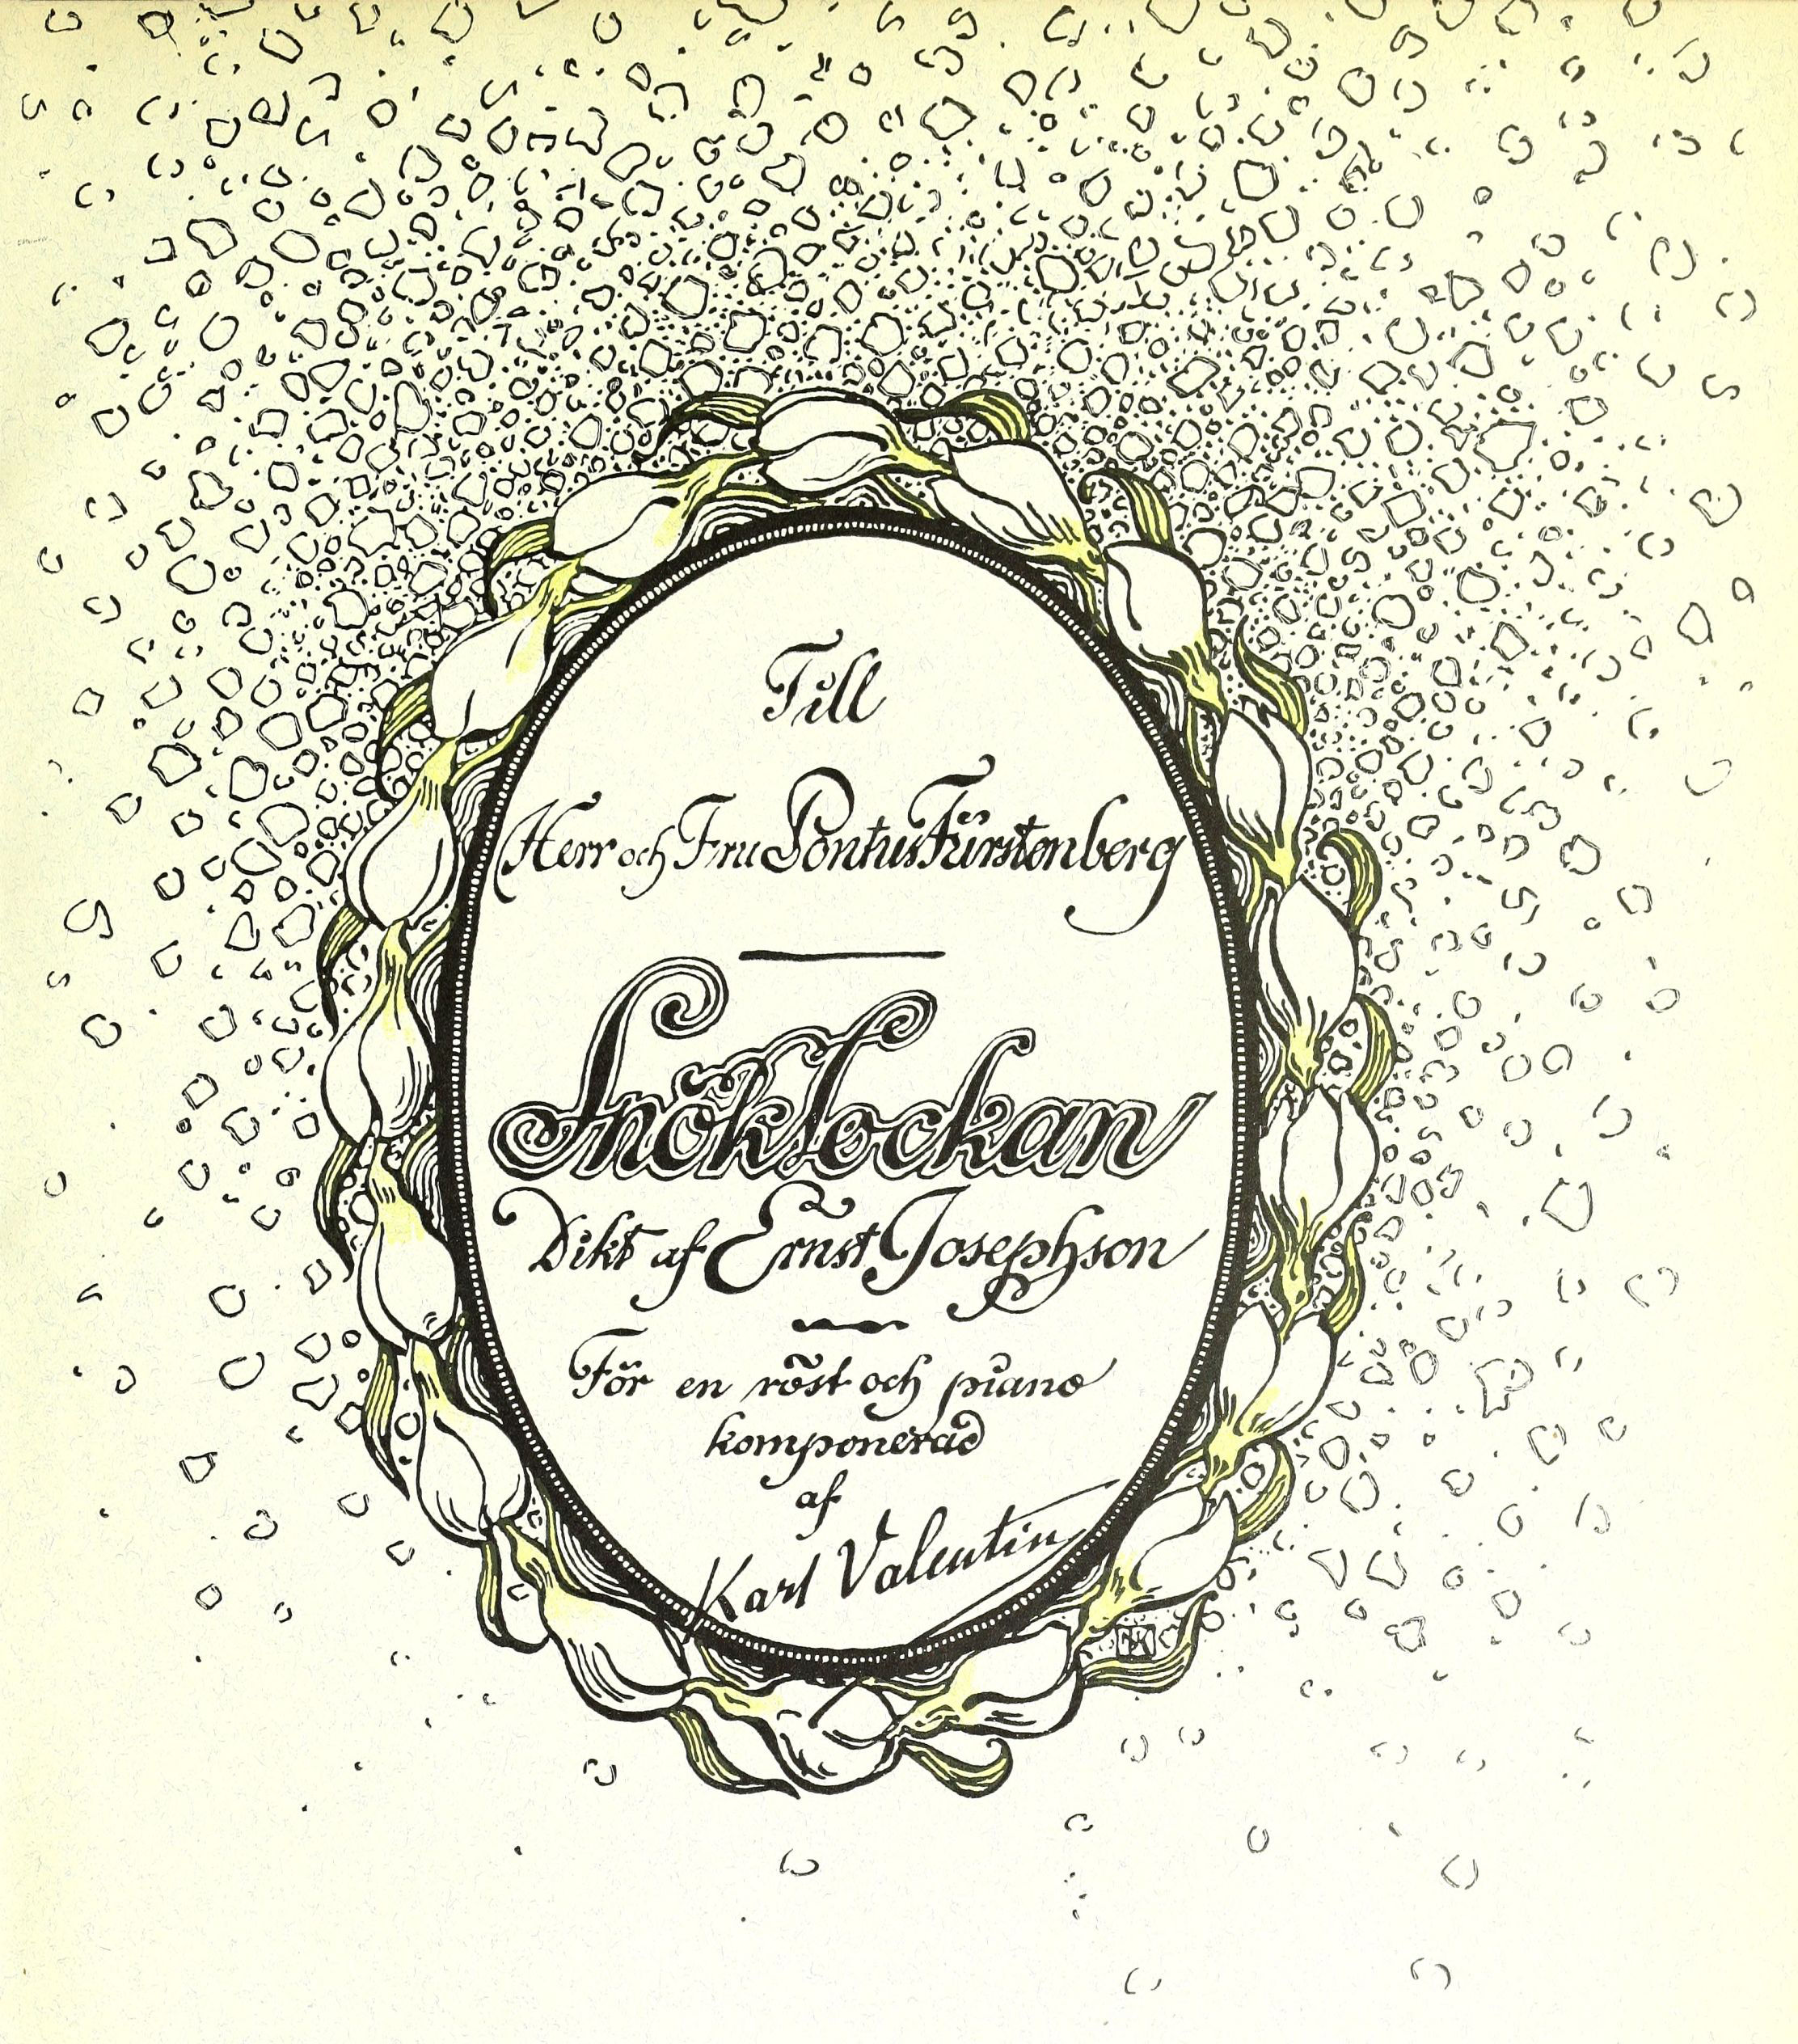 Till
Herr och Fru Pontus Fürstenberg
Snöklockan
Dikt af Ernst Josephson
För en röst och piano
komponerad
af
Karl Valentin